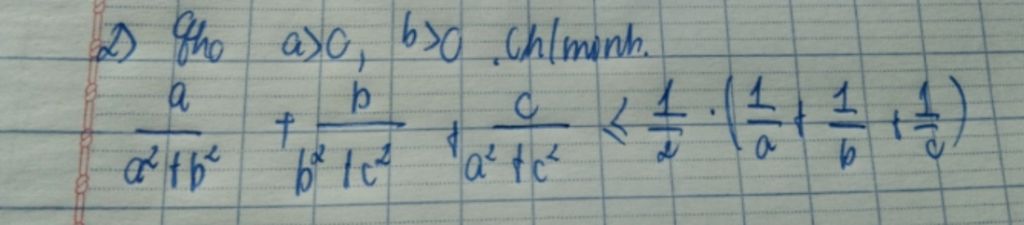 2) Cho a>0, b>0. Ch/minh.
a/(a²+b²) + b/(b²+c²) + c/(a²+c²) ≤ 1/2 · (1/a + 1/b + 1/c)